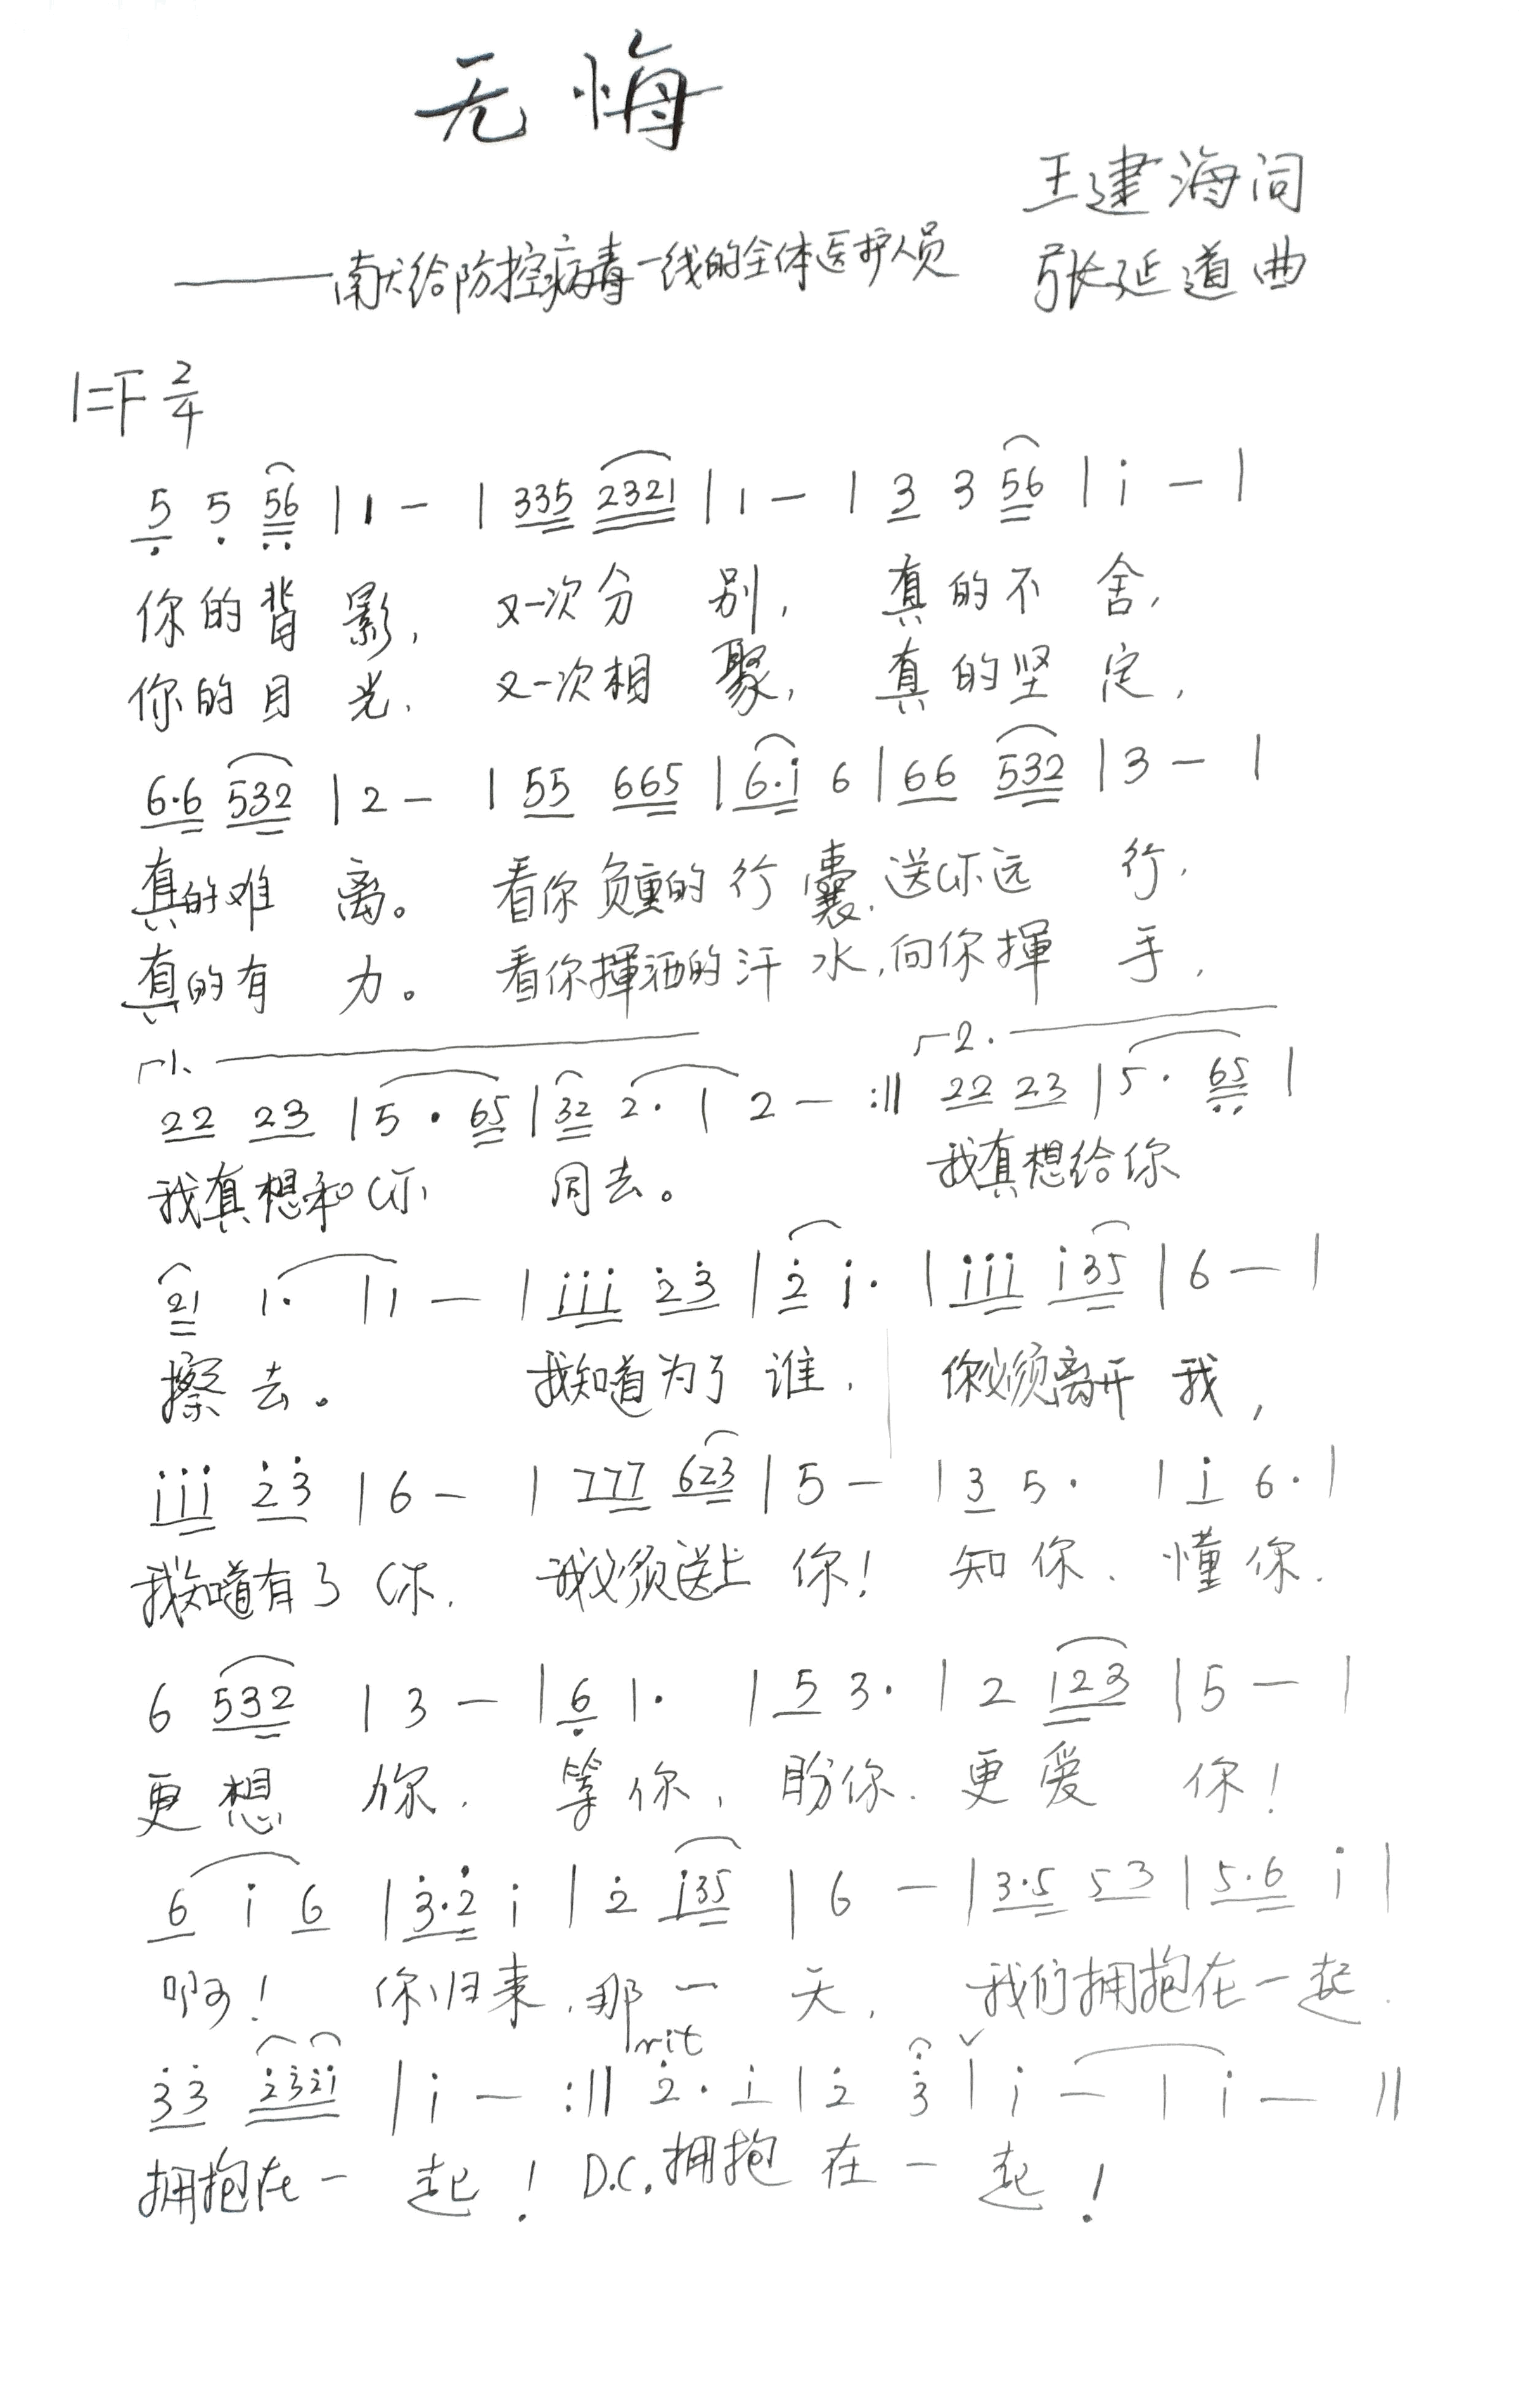 无悔
王建海词
——献给防控病毒一线的全体医护人员
张延道曲
1=F 2/4
5 5 56 | 1 - | 335 2321 | 1 - | 3 3 56 | i - |
你的背影, 又一次分别, 真的不舍,
你的目光, 又一次相聚, 真的坚定,
6·6 532 | 2 - | 55 665 | 6·i 6 | 66 532 | 3 - |
真的难离。 看你负重的行囊,送你远行,
真的有力。 看你揮洒的汗水,向你揮手,
1. 2.
22 23 | 5· 65 | 32 2· | 2 - :|| 22 23 | 5· 65 |
我真想和你同去。 我真想给你
21 1· | 1 - | iii 23 | 2 i· | iii i35 | 6 - |
擦去。 我知道为了谁, 你必须离开我,
iii 23 | 6 - | 777 623 | 5 - | 3 5· | i 6· |
我知道有了你, 我必须送上你! 知你、懂你、
6 532 | 3 - | 6 1· | 5 3· | 2 123 | 5 - |
更想你, 等你, 盼你、更爱你!
6 i 6 | 3·2 i | 2 i35 | 6 - | 3·5 53 | 5·6 i |
啊! 你归来,那一天, 我们拥抱在一起
rit
33 2321 | i - :|| 2· i | 2 3 | i - | i - ||
拥抱在一起! D.C. 拥抱在一起!